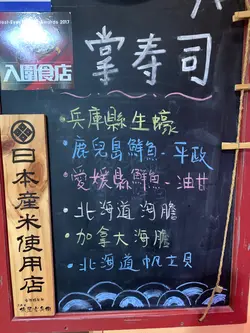 Awards 2017
入圍食店
掌寿司
• 兵庫縣生蠔
• 鹿兒島鮮魚-平政
• 愛媛縣鮮魚-油甘
• 北海道海膽
• 加拿大海膽
• 北海道帆立貝
日本産米使用店